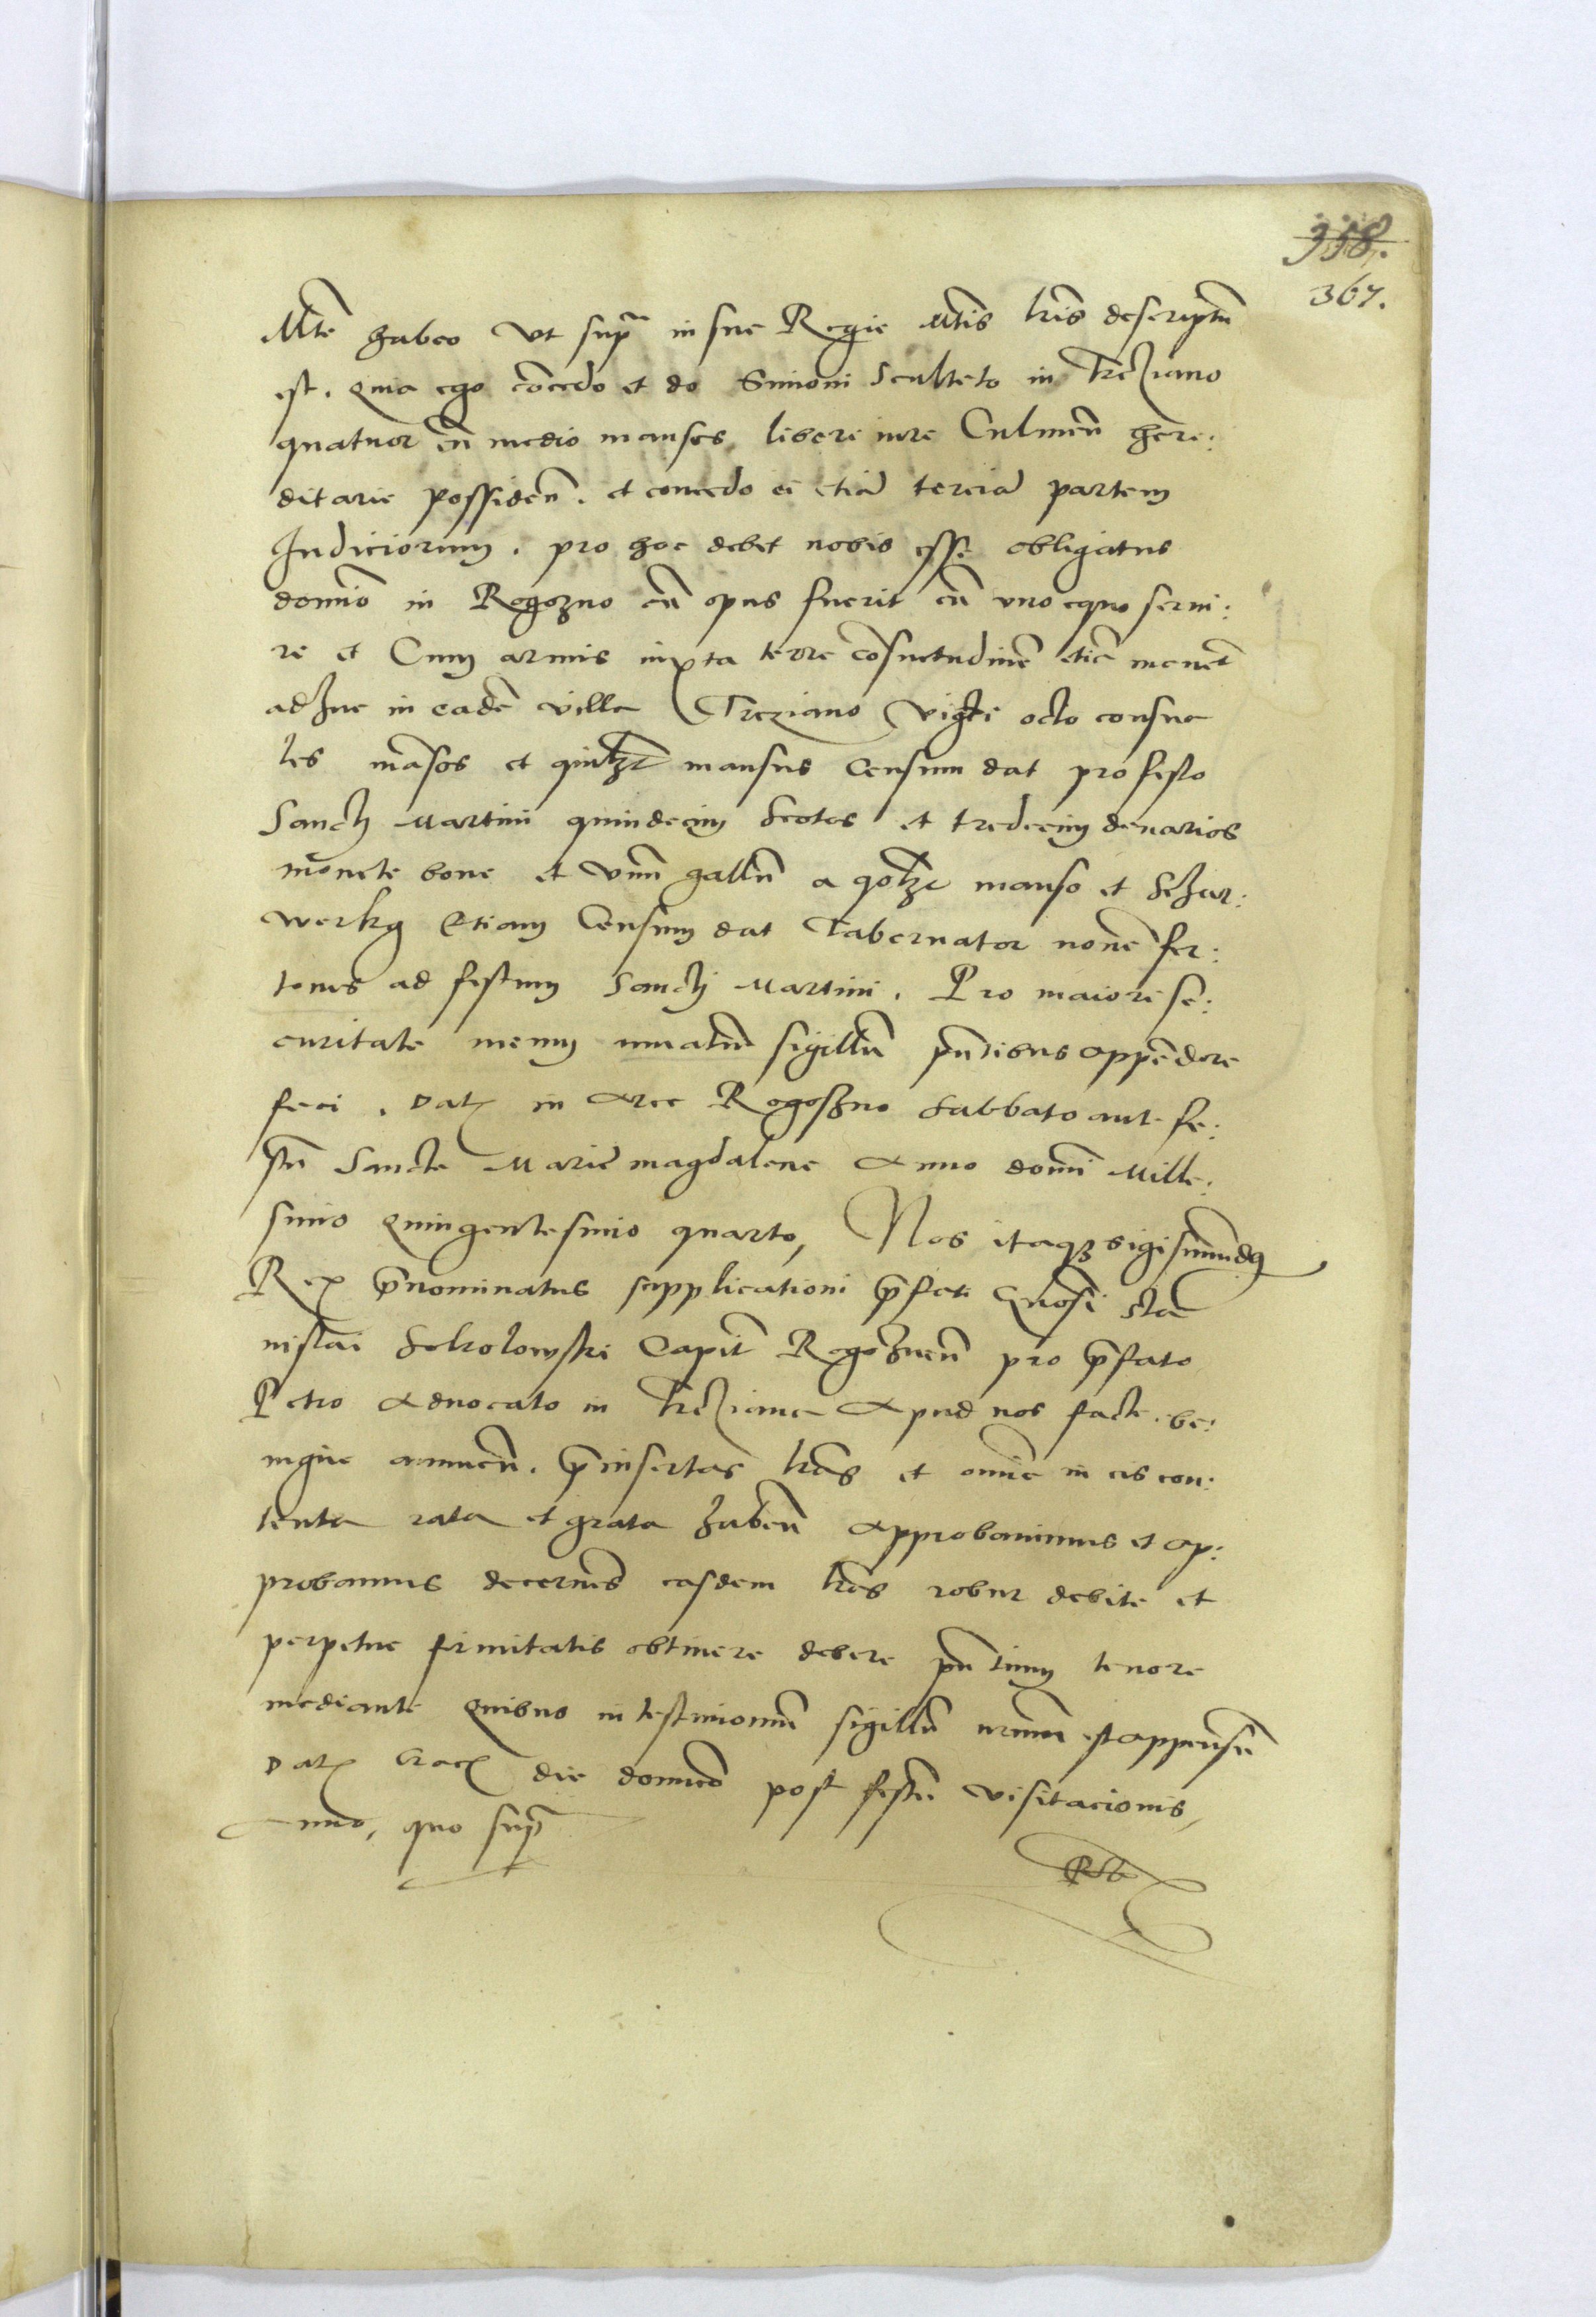 358.
367.
Mte habeo Ut supra in sue Regie Mtis lris descriptu
est. Quia ego cocedo et do Simoni Sculteto in Treziano
quatuor cu medio mansos libere iure Culmen here:
ditarie possiden. et concedo ei etia tercia partem
Iudiciorum. pro hoc debet nobis esse obligatus
domino in Rogozno cu opus fuerit cu uno equo servi:
re et Cum armis iuxta terre cosuetudine etia
adhuc in eade villa Treziano octo
les masos et quilzt mansus Censum dat pro festo
Sancti Martini quindecim Scotos et tredecim denarios
monete bone et unu gallu a qolzt manso et Schar:
werkg Etiam Censum dat Tabernator nove fer:
tones ad festum Sancti Martini. Pro maiori se:
curitate meum sigillu pntibus appedere
feci. Dat in Arce Rogoszno Sabbato ante fe:
stu Sancte Marie magdalene Anno domi Mille:
simo Quingentesimo quarto, Nos itaqz Sigismundus
Rex prenominatus supplicationi prefati Gnosi Sta
nislai Sokolowski Capit Rogoznen pro prefato
Petro Advocato in Treziano Apud nos facte be:
nigne annuen. preinsertas lras et omia in eis con:
tenta rata et grata haben Approbavimus et ap:
probamus decernes easdem lras robur debite et
perpetue firmitatis obtinere debere pntium tenore
mediante Quibus in testimonium sigillu nrum est appensu
Dat Crac die domico post festu visitacionis,
Anno, quo supra